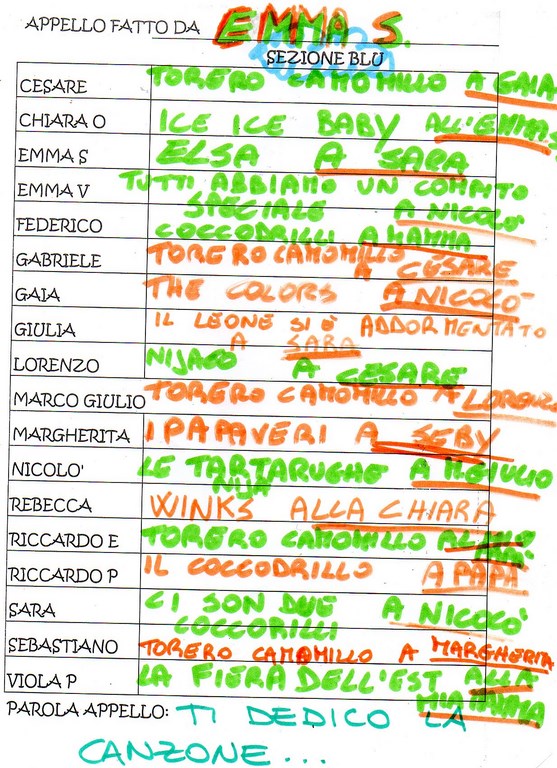 APPELLO FATTO DA EMMA S.
SEZIONE BLU
CESARE TORERO CAMOMILLO A GAIA
CHIARA O ICE ICE BABY ALL'EMMA S
EMMA S ELSA A SARA
EMMA V TUTTI ABBIAMO UN COMPITO
SPECIALE A NICOLO'
FEDERICO COCCODRILLI A MAMMA
GABRIELE TORERO CAMOMILLO
A CESARE
GAIA THE COLORS A NICOLO'
GIULIA IL LEONE SI È ADDORMENTATO
A SARA
LORENZO NIJAGO A CESARE
MARCO GIULIO TORERO CAMOMILLO A LORENZO
MARGHERITA I PAPAVERI A SEBY
NICOLO' LE TARTARUGHE A M.GIULIO
NIJA
REBECCA WINKS ALLA CHIARA
RICCARDO E TORERO CAMOMILLO
RICCARDO P IL COCCODRILLO A PAPÀ
SARA CI SON DUE A NICOLO'
COCCODRILLI
SEBASTIANO TORERO CAMOMILLO A MARGHERITA
VIOLA P LA FIERA DELL'EST ALLA
MIA MAMMA
PAROLA APPELLO: TI DEDICO LA
CANZONE...